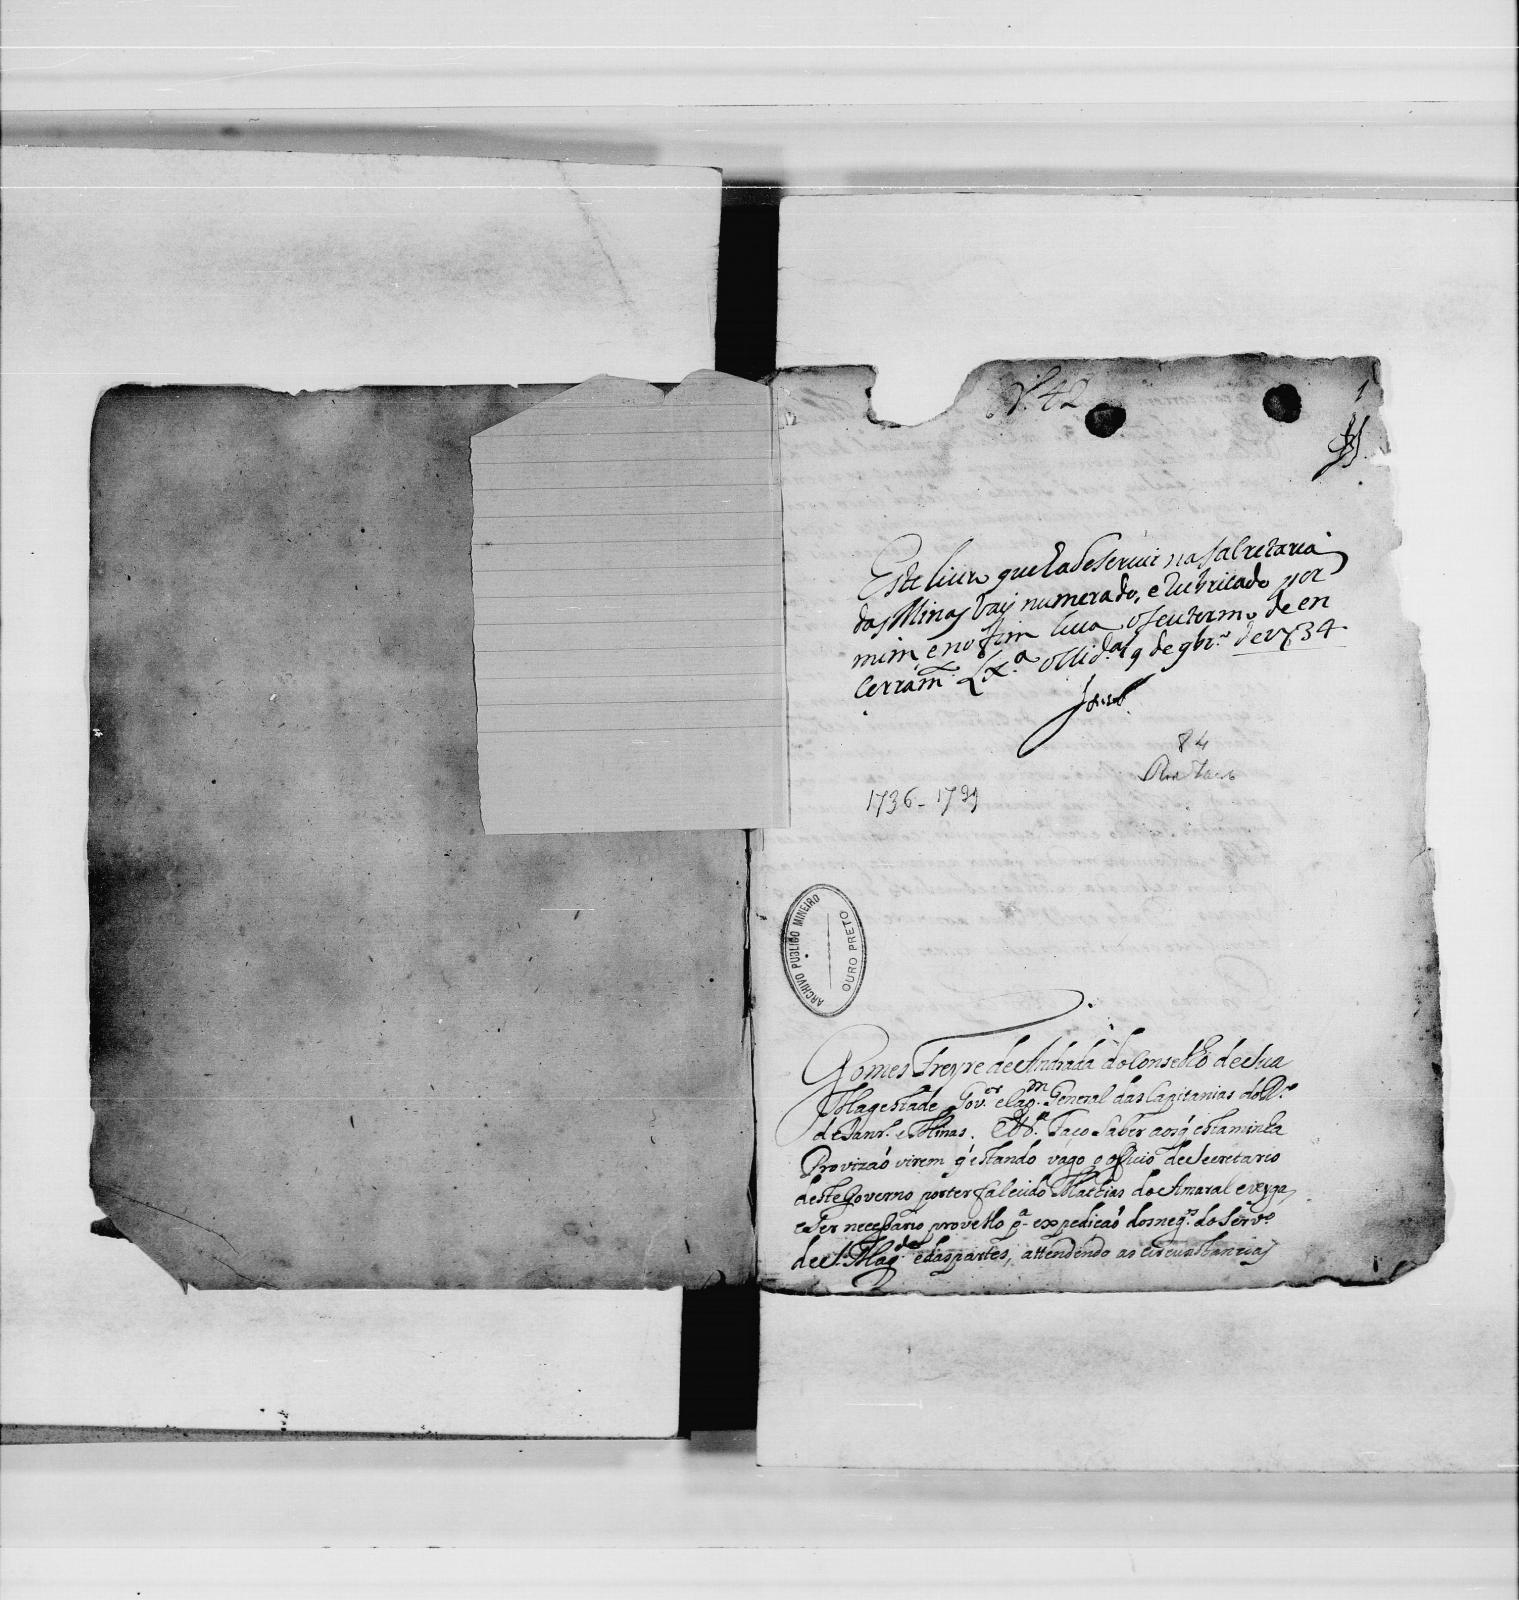 Nº 42
1
Este livro que ha de servir na Salretaria
das Minas vay numerado, e rubricado por
mim e no fim leva o seu termo de en
cerram.to Lx.a occid.al 9 de 9br.o de 1734
84
1736-1739
ARCHIVO PUBLICO MINEIRO
OURO PRETO
Gomes Freyre de Andrada do Conselho de Sua
Magestade Gov.or e Cap.m General das Capitanias do R.o
de Janr.o e Minas. Faço saber aos q̃ esta minha
Provizaó virem q̃ estando vago o officio de Secretario
deste Governo por ter falecido Mathias do Amaral e veyga,
e ser necessario provello p.a expedicaó dos neg.os do Serv.o
de S. Mag.de e das partes, attendendo as circunstancias